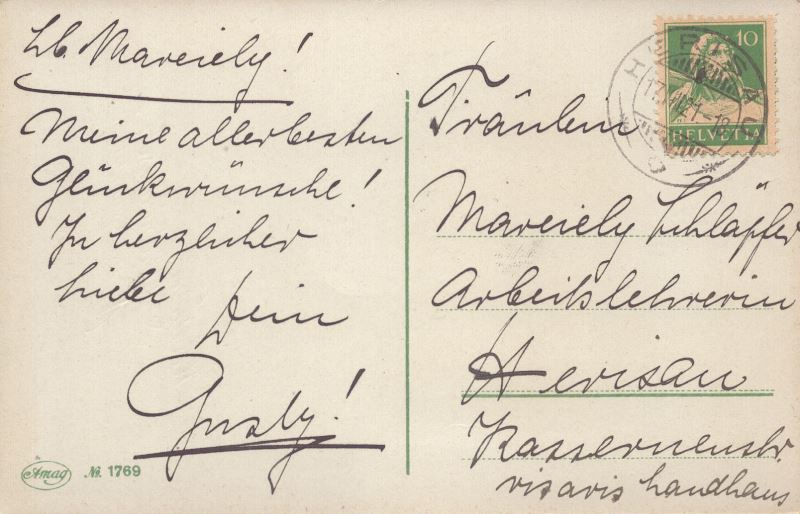 Lb. Mareiely!
Meine allerbesten
Glückwünsche!
In herzlicher
Liebe
Dein
Gusty!
Amag
No. 1769
10
HELVETIA
HERISAU
Fräulein
Mareiely Schläpfer
Arbeitslehrerin
Herisau
Kassernenstr.
visavis Landhaus